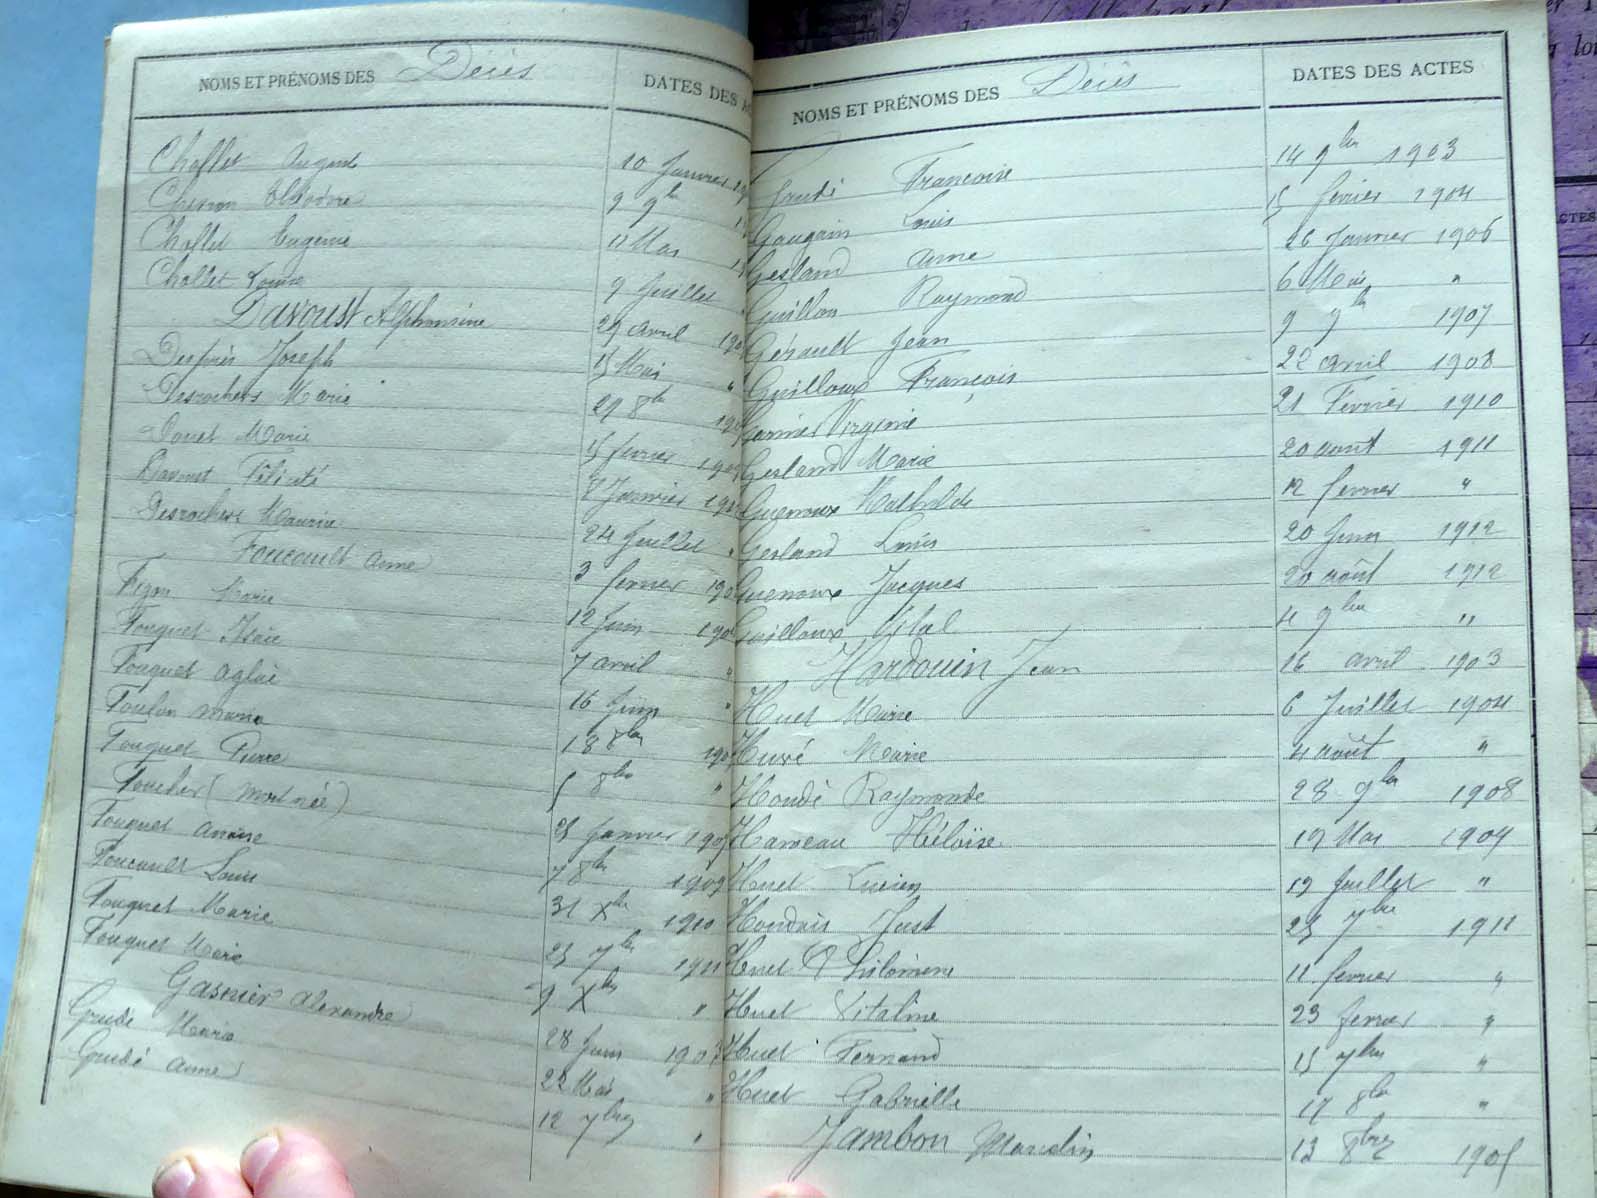 NOMS ET PRÉNOMS DES Décès DATES DES
Chollet August 10 Janvier
Chesnon 9 9bre
Chollet Eugenie 11 Mai
Chollet Louise 9 Juillet "
Davoust Alphonsine 29 avril 190
Després Joseph 15 Mai "
Desrochers Marie 29 8bre 190
Douet Marie 15 fevrier 190
Davoust Félicité 8 Janvier 190
Desrochers Maurice 24 Juillet "
Foucault Anne 3 fevrier 190
Fizon Marie 12 Juin 190
Fouquet Isaïe 7 avril "
Fouquet Aglaé 16 Juin "
Foulon Maria 18 8bre 190
Fouquet Pierre 5 8bre "
Foucher (mort née) 25 Janvier 190
Fouquet 7 8bre 1909
Foucault Louis 31 Xbre 1910
Fouquet Marie 23 7bre 1911
Fouquet Marie 9 Xbre "
Gasnier Alexandre 28 Juin 190
Grudé Marie 22 Mai "
Grudé Anne 12 7bre "
NOMS ET PRÉNOMS DES Décès DATES DES ACTES
Françoise 14 9bre 1903
Gaugain Louis 15 février 1904
Gesland Anne 26 Janvier 1906
Guillou Raymond 6 Mai "
Gérault Jean 9 9bre 1907
Guilloux François 22 avril 1908
Garnier Virginie 21 Février 1910
Gesland Marie 20 aout 1911
Guenoux Mathilde 12 fevrier "
Gesland Louis 20 Juin 1912
Guenoux Jacques 20 août 1912
Guilloux Vital 4 9bre "
Hardouin Jean 16 avril 1903
Huet Marie 6 Juillet 1904
Huré Marie 4 août "
Houdé Raymonde 28 9bre 1908
Hameau Héloïse 19 Mai 1909
Huet Lucien 19 Juillet "
Houdais Just 23 7bre 1911
Huet Philomène 11 fevrier "
Huet Vitaline 23 fevrier "
Huet Fernand 15 7bre "
Huet Gabrielle 17 8bre "
Jambon 13 8bre 1905